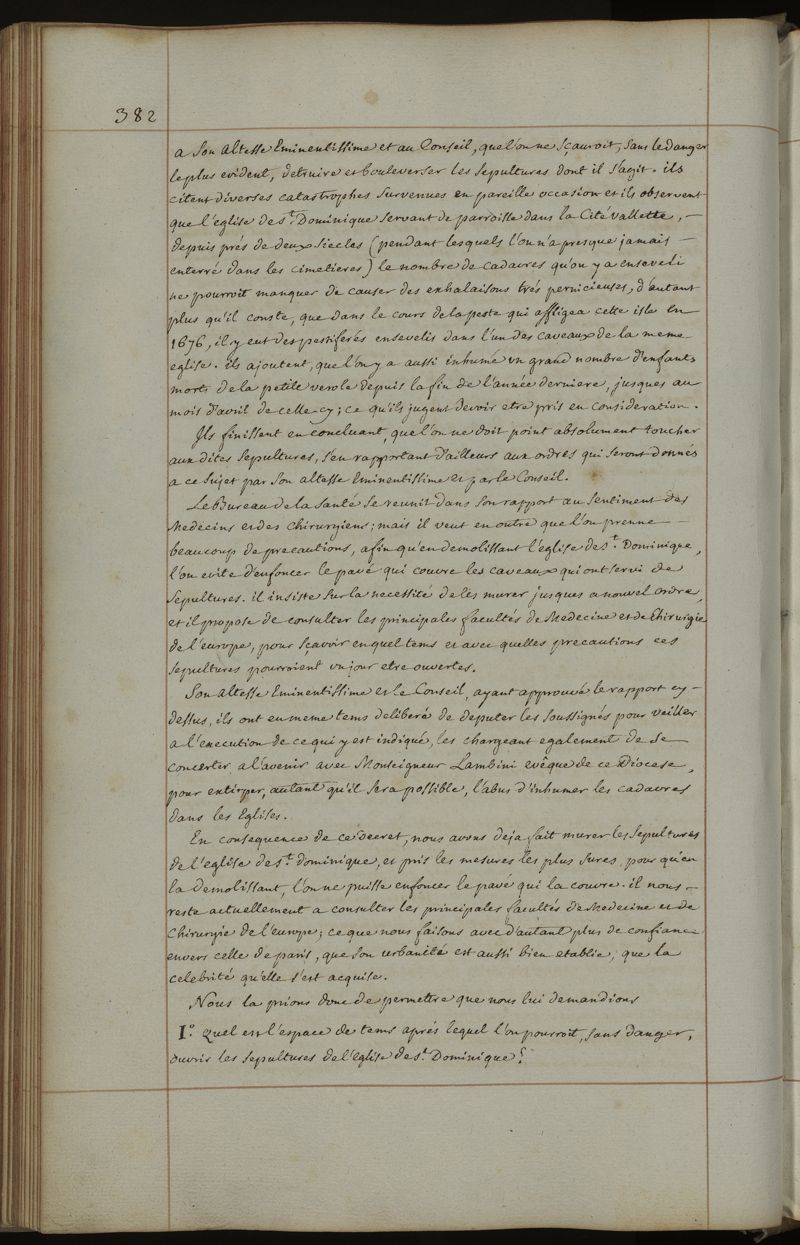 382
a Son Altesse Eminentissime et au Conseil, que l'on ne sçauroit, sans le danger
le plus evident, detruire et bouleverser les sepultures dont il s'agit. ils
citent diverses catastrophes survenues en pareille occasion et ils observent
que l'eglise de st. Dominique servant de parroisse dans la Cité Vallette, —
depuis prés de deux siecles (pendant lesquels l'on n'a presque jamais —
enterré dans les cimetieres) le nombre de cadavres qu'on y a enseveli
ne pourroit manquer de causer des exhalaisons trés pernicieuses, d'autant
plus qu'il conste, que dans le cours de la peste qui affligea cette isle en
1676, il y eut des pestiferés ensevelis dans l'un des caveaux de la meme
eglise. ils ajoutent, que l'on y a aussi inhumé un grand nombre d'enfants
morts de la petite verole depuis la fin de l'année derniere, jusques au
mois d'avril de celle cy; ce qu'ils jugent devoir etre pris en consideration.
Ils finissent en concluant, que l'on ne doit point absolument toucher
aux dites sepultures, s'en rapportant d'ailleurs aux ordres qui seront donnés
a ce sujet par Son altesse Eminentissime et par le Conseil.
Le Bureau de la Santé se reunit dans son rapport au sentiment des
Medecins et des chirurgiens; mais il veut en outre que l'on prenne —
beaucoup de precautions, afin qu'en demolissant l'eglise de st. Dominique,
l'on evite d'enfoncer le pavé qui couvre les caveaux qui ont servi de
sepultures. il insiste sur la necessité de les murer jusques a nouvel ordre,
et il propose de consulter les principales facultés de Medecine et de Chirurgie
de l'europe, pour sçavoir en quel tems et avec quelles precautions ces
sepultures pourroient un jour etre ouvertes.
Son altesse Eminentissime et le Conseil, ayant approuvé le rapport cy —
dessus, ils ont en meme tems deliberé de deputer les soussignés pour veiller
a l'execution de ce qui y est indiqué, les chargeant egalement de se
concerter a l'avenir avec Monseigneur Lambini evêque de ce Diocese,
pour extirper, autant qu'il sera possible, l'abus d'inhumer les cadavres
dans les Eglises.
En consequence de ce decret, nous avons deja fait murer les sepultures
de l'eglise de st. dominique, et pris les mesures les plus sures, pour qu'en
la demolissant, l'on ne puisse enfoncer le pavé qui la couvre. il nous —
reste actuellement a consulter les principales facultés de Medecine et de
Chirurgie de l'europe; ce que nous faisons avec d'autant plus de confiance
envers celle de paris, que son urbanité est aussi bien etablie, que la
celebrité qu'elle s'est acquise.
Nous la prions donc de permettre que nous lui demandions
I.o Quel est l'espace de tems aprés lequel l'on pourroit, sans danger,
ouvrir les sepultures de l'eglise de st. Dominique?